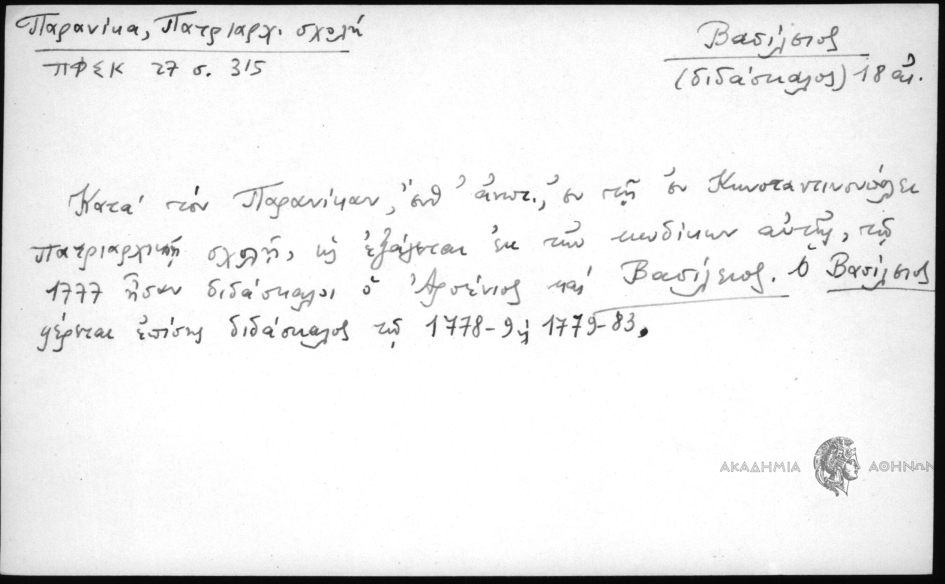 Παρανίκα, Πατριαρχ. σχολή
ΠΦΣΚ 27 σ. 315
Βασίλειος
(διδάσκαλος) 18 αἰ.
Κατά τόν Παρανίκαν, ἐν τῇ ἐν Κωνσταντινουπόλει
πατριαρχικῇ σχολῇ, ὡς ἐξάγεται ἐκ τῶν κωδίκων αὐτῆς, τῷ
1777 ἦσαν διδάσκαλοι ὁ Ἀρσένιος καί Βασίλειος. Ὁ Βασίλειος
φέρεται ἐπίσης διδάσκαλος τῷ 1778-9 ἤ 1779-83.
ΑΚΑΔΗΜΙΑ ΑΘΗΝΩΝ